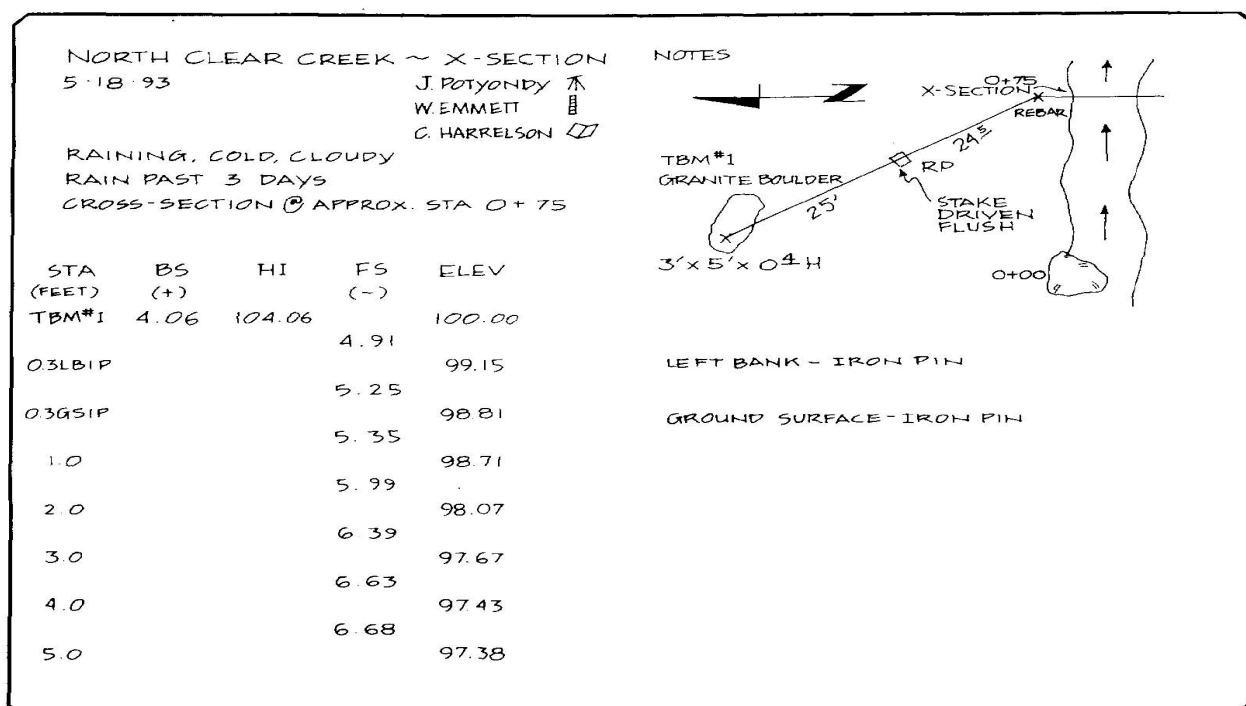 NORTH CLEAR CREEK ~ X-SECTION
5·18·93 J. POTYONDY
W. EMMETT
C. HARRELSON
RAINING, COLD, CLOUDY
RAIN PAST 3 DAYS
CROSS-SECTION @ APPROX. STA 0+75
STA BS HI FS ELEV
(FEET) (+) (-)
TBM#1 4.06 104.06 100.00
4.91
0.3LBIP 99.15
5.25
0.3GSIP 98.81
5.35
1.0 98.71
5.99
2.0 98.07
6.39
3.0 97.67
6.63
4.0 97.43
6.68
5.0 97.38
NOTES
0+75
X-SECTION
REBAR
24.5
RP
TBM#1
GRANITE BOULDER
25'
STAKE
DRIVEN
FLUSH
3'x5'x0.4H
0+00
LEFT BANK - IRON PIN
GROUND SURFACE - IRON PIN